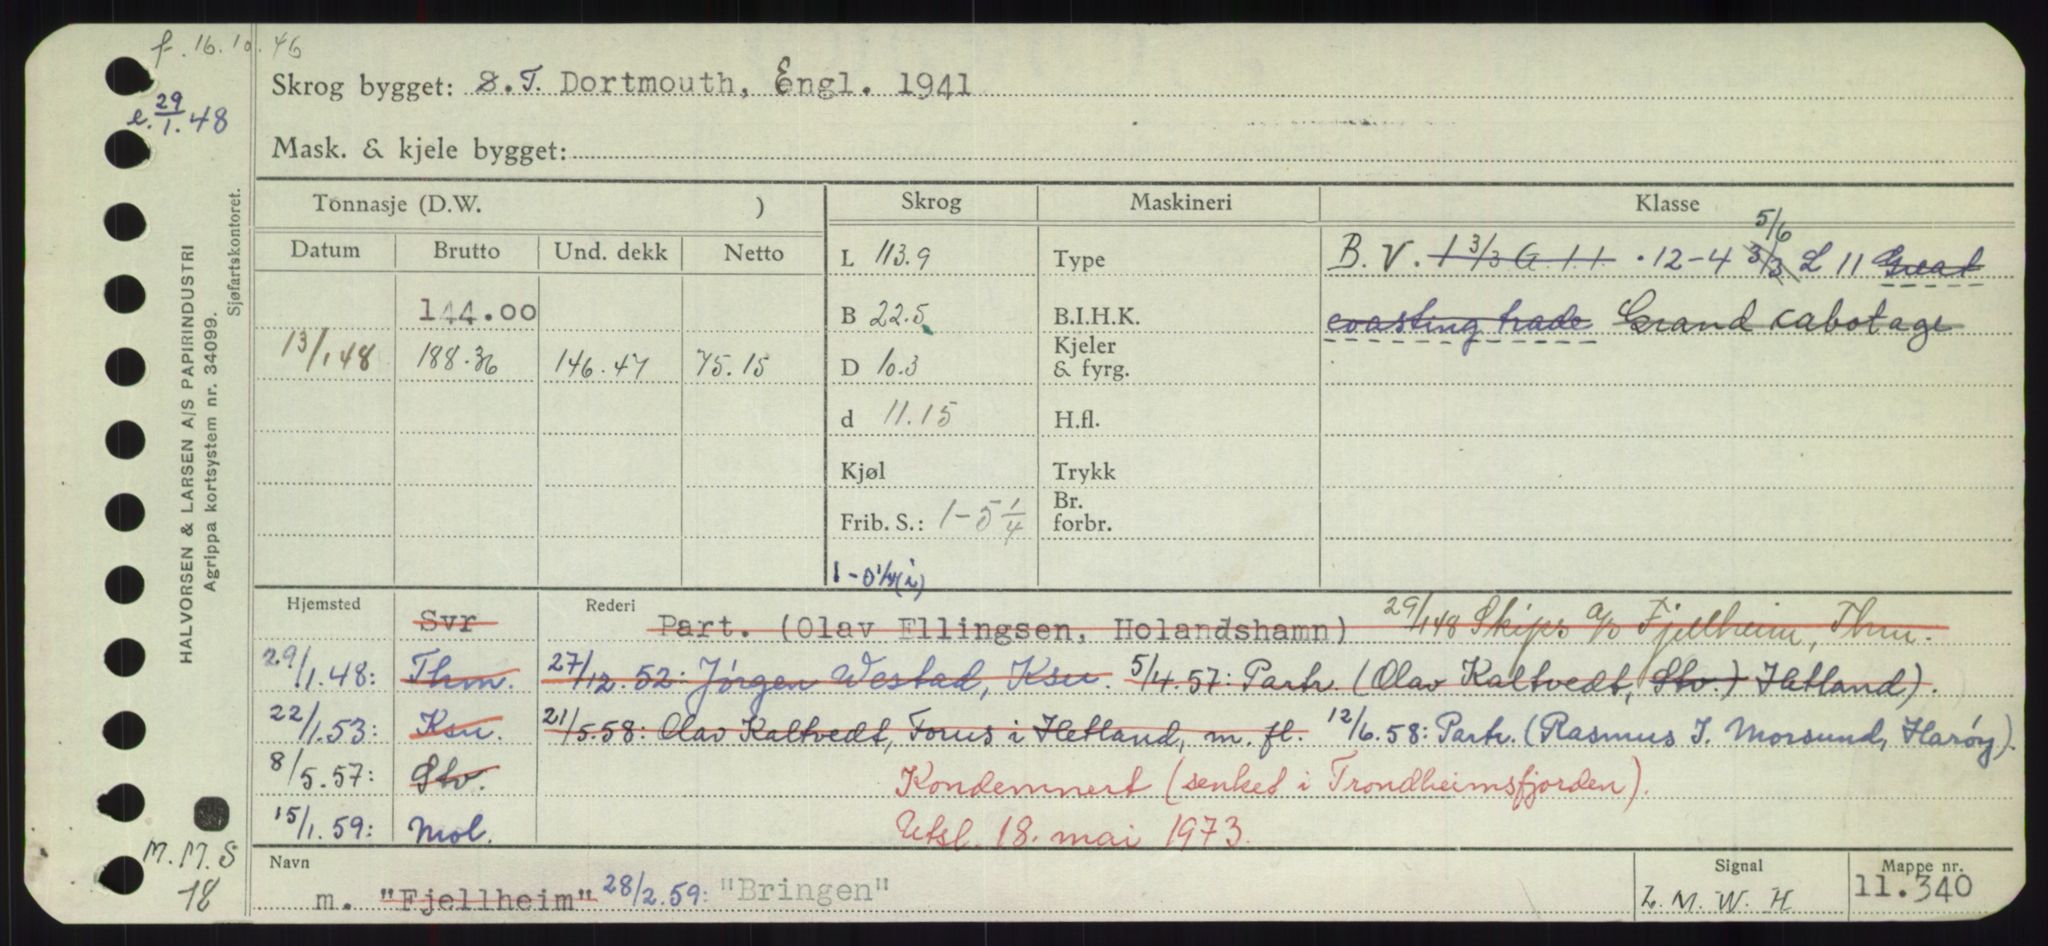 f. 16.10.46
e. 29/1.48
Skrog bygget: S.T. Dortmouth, Engl. 1941
Mask. & kjele bygget:
HALVORSEN & LARSEN A/S PAPIRINDUSTRI
Agrippa kortsystem nr. 34099.
Sjøfartskontoret.
Tonnasje (D.W. )
Skrog
Maskineri
Klasse
Datum Brutto Und. dekk Netto
144.00
13/1.48 188.36 146.47 75.15
L 113.9
B 22.5
D 10.3
d 11.15
Kjøl
Frib. S.: 1-5 1/4
1-0 1/4(i)
Type
B.I.H.K.
Kjeler
& fyrg.
H.fl.
Trykk
Br.
forbr.
5/6
B.V. 1 3/3 G 1 1 . 12-4 3/3 L 11 Great
coasting trade Grand cabotage
Hjemsted Rederi
Svr Part. (Olav Ellingsen, Holandshamn) 29/1.48 Skips a/s Fjellheim, Thm.
29/1.48: Thm. 27/12.52: Jørgen Westad, Ksu. 5/4.57: Partr. (Olav Kaltvedt, Stv.) Hetland).
22/1.53: Ksu. 21/5.58: Olav Kaltvedt, Forus i Hetland, m. fl. 12/6.58: Partr. (Rasmus J. Morsund, Harøy).
8/5.57: Stv. Kondemnert (senket i Trondheimsfjorden).
15/1.59: Mol. Utsl. 18. mai 1973.
M.M.S
18
Navn Signal Mappe nr.
m. "Fjellheim" 28/2.59: "Bringen" L.M.W.H 11.340